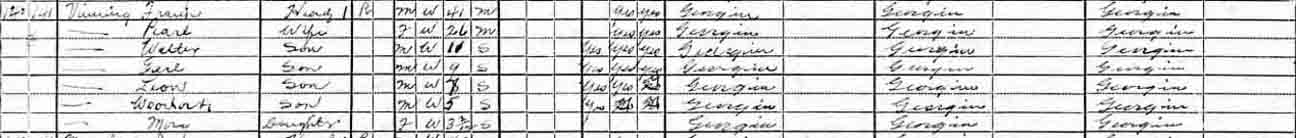 Vining Frank Head 1 R M W 41 M Yes Yes Georgia Georgia Georgia
— Pearl Wife F W 26 M Yes Yes Georgia Georgia Georgia
— Walter Son M W 11 S Yes Yes Yes Georgia Georgia Georgia
— Son M W 9 S Yes Yes Yes Georgia Georgia Georgia
— Leon Son M W S Yes Yes Georgia Georgia Georgia
— Son M W 5 S Yes Georgia Georgia Georgia
— Mary Daughter F W S Georgia Georgia Georgia